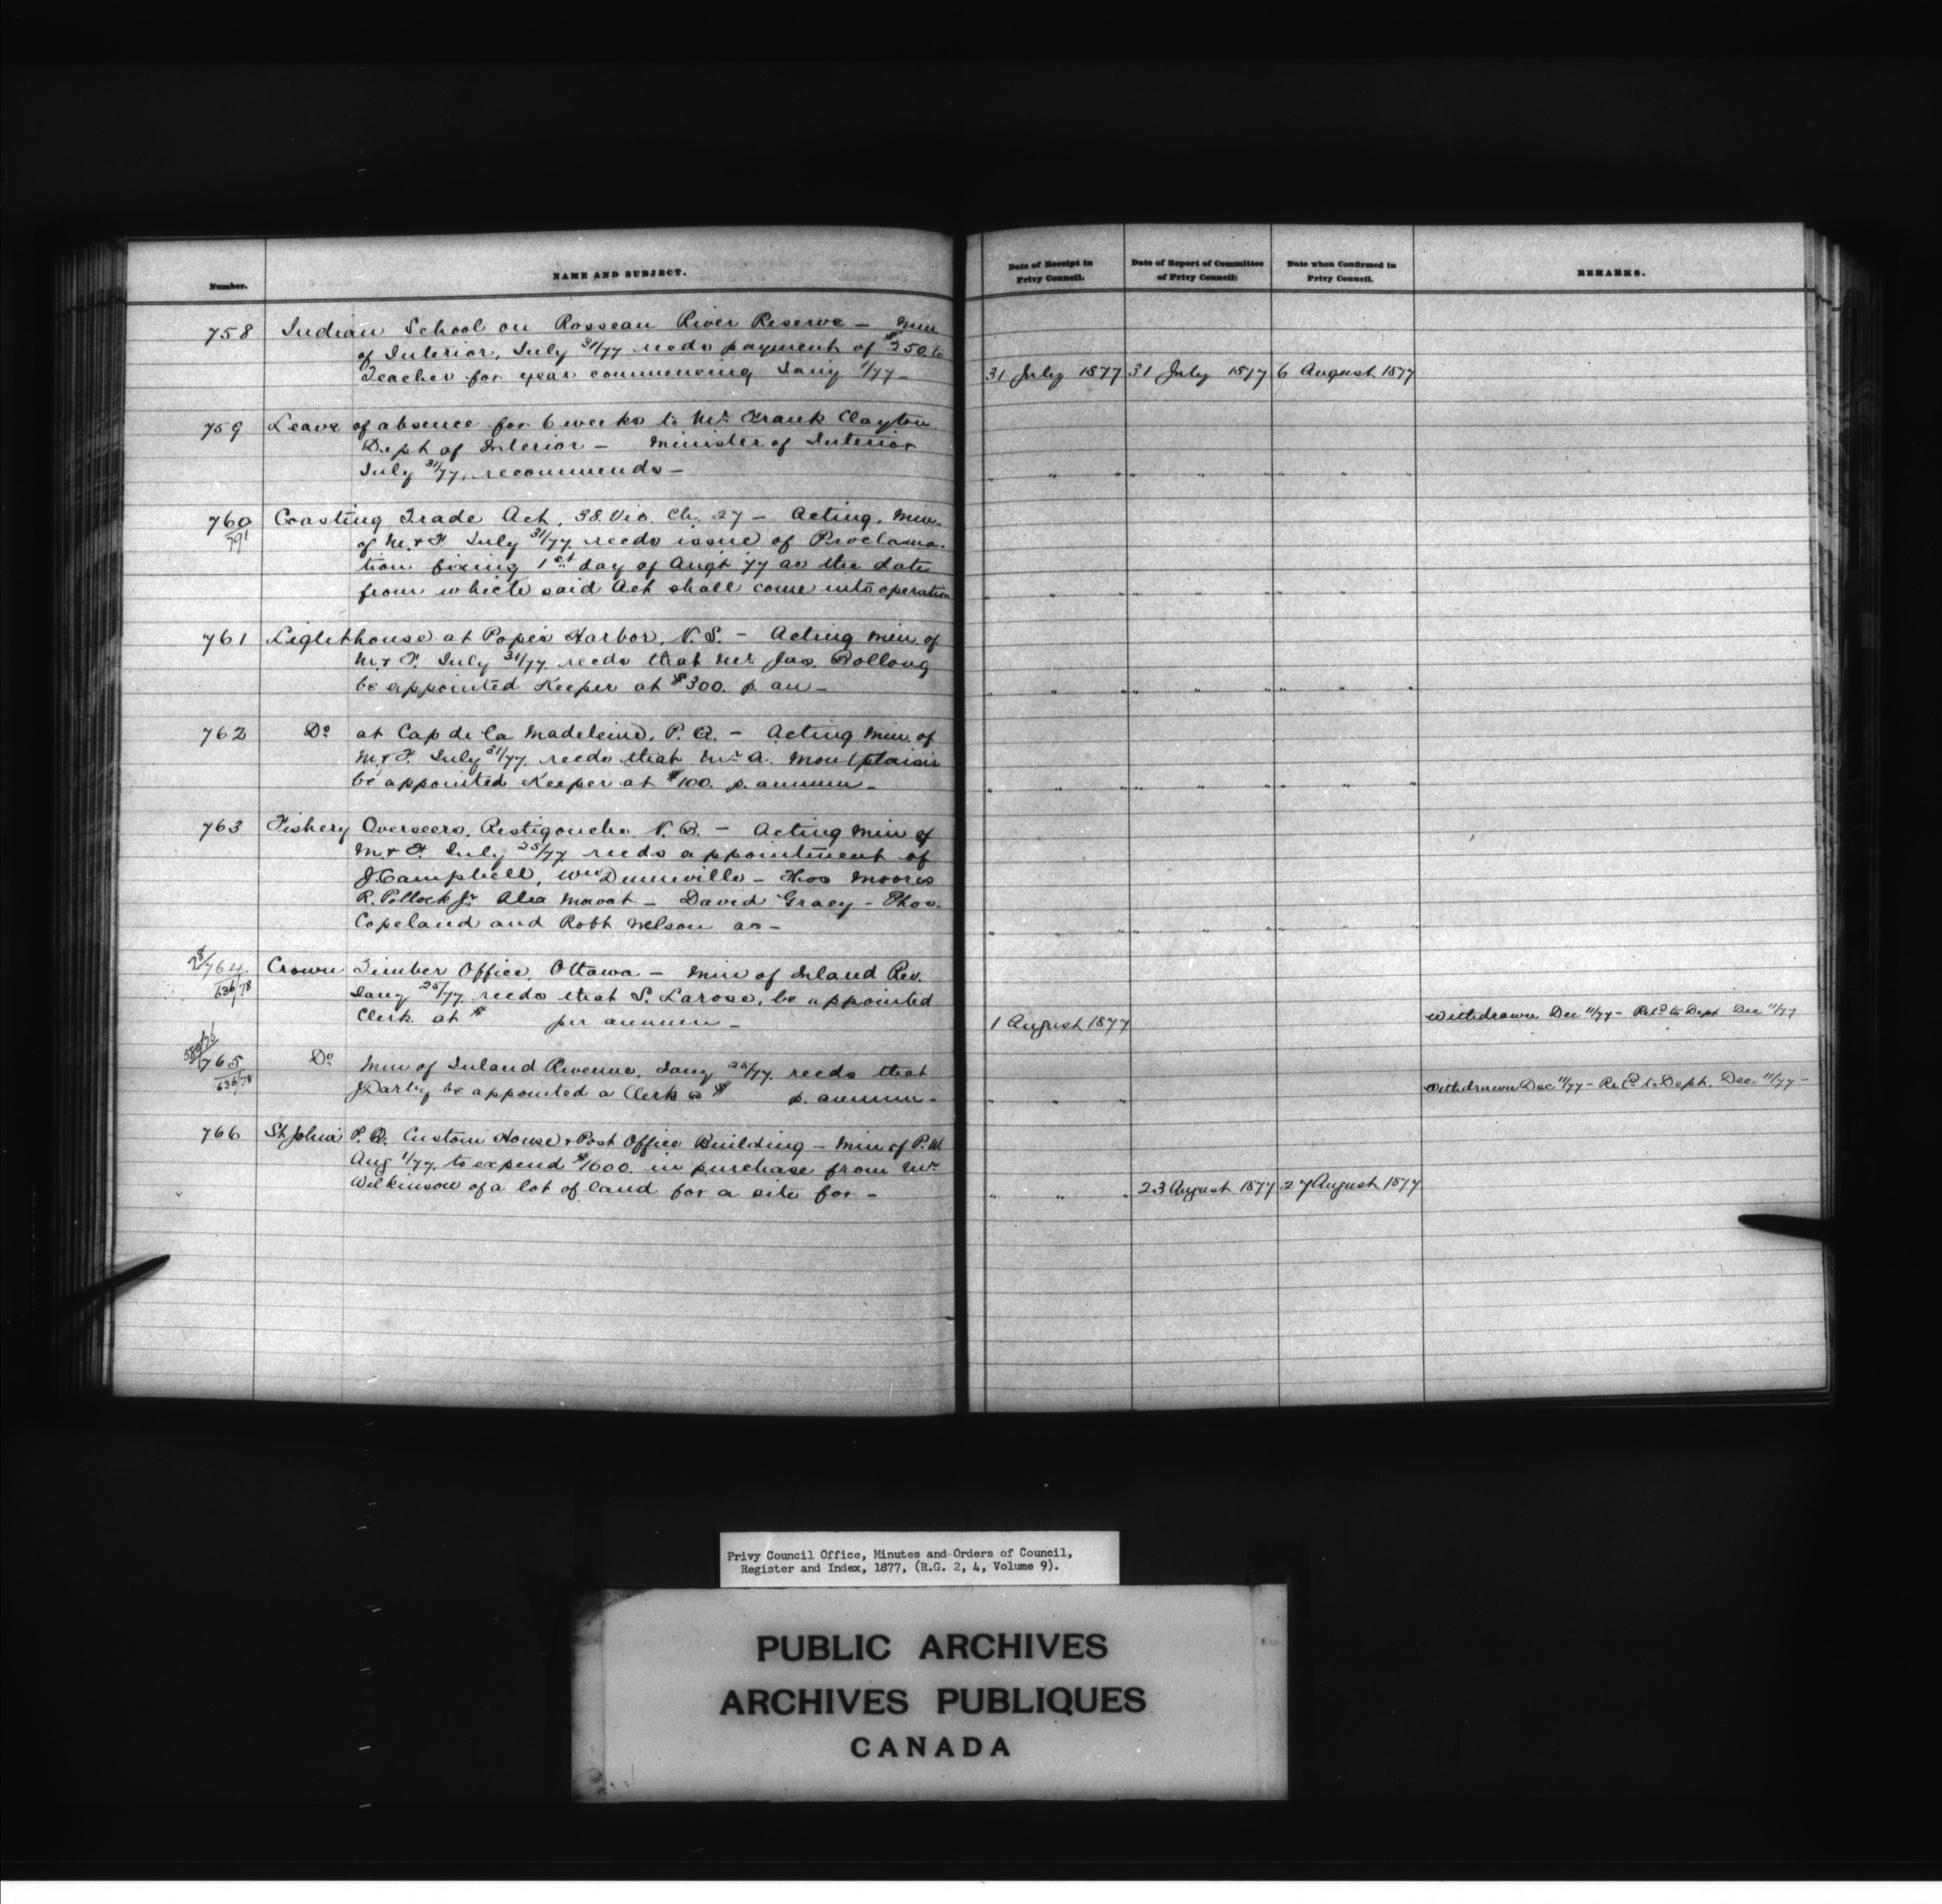 Number.
NAME AND SUBJECT.
Date of Receipt in
Privy Council.
Date of Report of Committee
of Privy Council.
Date when Confirmed in
Privy Council.
REMARKS.
758 Indian School on Rosseau River Reserve — Min
of Interior, July 31/77 recds payment of $250. to
Teacher for year commencing Jany 1/77 —
31 July 1877 31 July 1877 6 August 1877
759 Leave of absence for 6 weeks to Mr. Frank Clayton
Dept of Interior — Minister of Interior
July 31/77. recommends —
" " " " " " " " "
760 Coasting Trade Act, 38. Vic. Ch. 27 — Acting Min.
791
of M. & F. July 31/77. recds issue of Proclama-
tion fixing 1st day of Augt 77 as the date
from which said Act shall come into operation
" " " " " " " " "
761 Lighthouse at Popes Harbor, N.S. — Acting Min of
M. & F. July 31/77. recds that Mr. Jas. Bollong
be appointed Keeper at $300. p. an —
" " " " " " " " "
762 Do at Cap de la Madeleine, P.Q. — Acting Min. of
M. & F. July 31/77. recds that Mr. A. Montplaisir
be appointed Keeper at $100. p. annum —
" " " " " " " " "
763 Fishery Overseers, Restigouche, N.B. — Acting Min of
M. & F. July 25/77. recds appointment of
J. Campbell, Wm Dunnville — Thos Moores
R. Pollock Jr. Alex Mowat — David Gracy — Thos.
Copeland and Robt Nelson as —
" " " " " " " " "
764 Crown Timber Office, Ottawa — Min of Inland Rev.
636/78
Jany 25/77. recds that S. Larose, be appointed
Clerk at $ per annum —
1 August 1877
Withdrawn Dec 11/77 — Retd to Dept Dec 11/77
765 Do Min of Inland Revenue, Jany 25/77. recds that
636/78
J. Darby be appointed a Clerk @ $ p. annum —
" " "
Withdrawn Dec 11/77 — Retd to Dept. Dec. 11/77 —
766 St Johns P.Q. Custom House & Post Office Building — Min of P.W.
Aug 1/77. to expend $1600. in purchase from Mr.
Wilkinson of a lot of land for a site for —
" " " 23 August 1877 27 August 1877
Privy Council Office, Minutes and Orders of Council,
Register and Index, 1877, (R.G. 2, 4, Volume 9).
PUBLIC ARCHIVES
ARCHIVES PUBLIQUES
CANADA